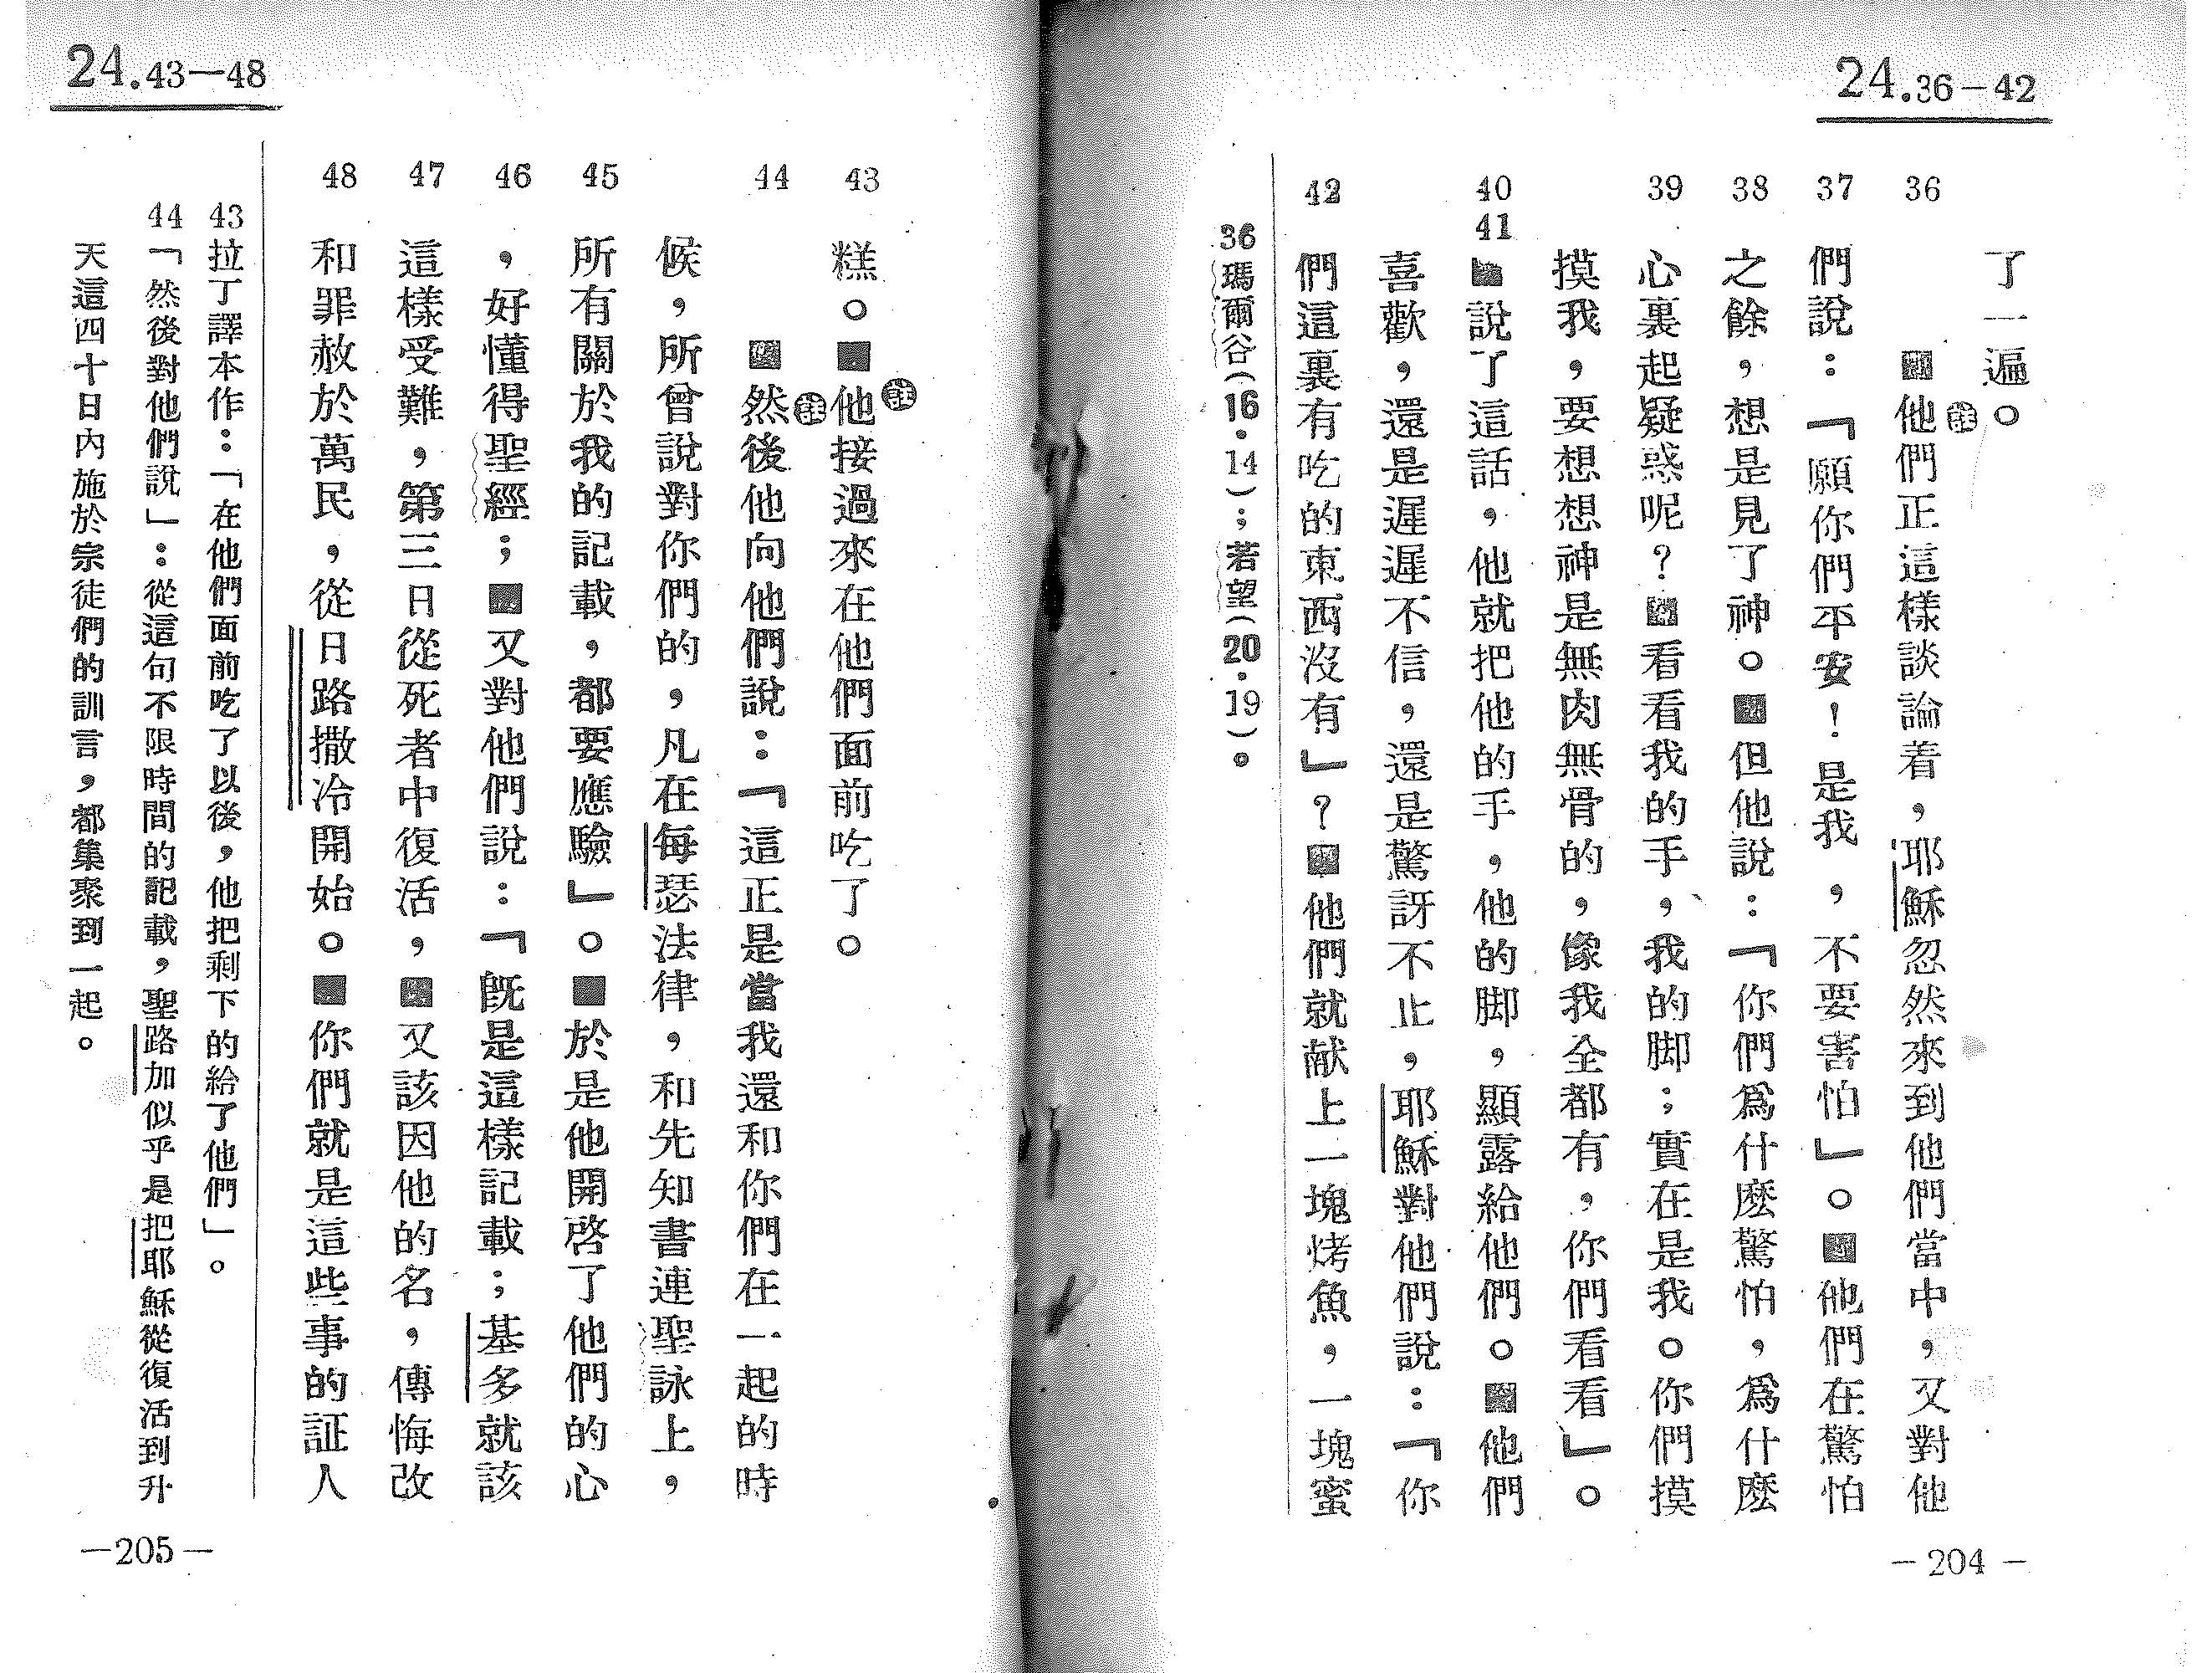 24.36—42
了一遍。
36 他們正這樣談論着，耶穌忽然來到他們當中，又對他
37 們說：「願你們平安！是我，不要害怕」。他們在驚怕
38 之餘，想是見了神。但他說：「你們爲什麽驚怕，爲什麽
39 心裏起疑惑呢？看看我的手，我的脚；實在是我。你們摸
摸我，要想想神是無肉無骨的，像我全都有，你們看看」。
40 41 說了這話，他就把他的手，他的脚，顯露給他們。他們
喜歡，還是遲遲不信，還是驚訝不止，耶穌對他們說：「你
42 們這裏有吃的東西沒有」？他們就献上一塊烤魚，一塊蜜
36 瑪爾谷(16·14)；若望(20·19)。
—204—
24.43—48
43 糕。他接過來在他們面前吃了。
註
44 然後他向他們說：「這正是當我還和你們在一起的時
註
候，所曾說對你們的，凡在每瑟法律，和先知書連聖詠上，
45 所有關於我的記載，都要應驗」。於是他開啓了他們的心
46 ，好懂得聖經；又對他們說：「旣是這樣記載；基多就該
47 這樣受難，第三日從死者中復活，又該因他的名，傳悔改
48 和罪赦於萬民，從日路撒冷開始。你們就是這些事的証人
43 拉丁譯本作：「在他們面前吃了以後，他把剩下的給了他們」。
44 「然後對他們說」：從這句不限時間的記載，聖路加似乎是把耶穌從復活到升
天這四十日內施於宗徒們的訓言，都集聚到一起。
—205—